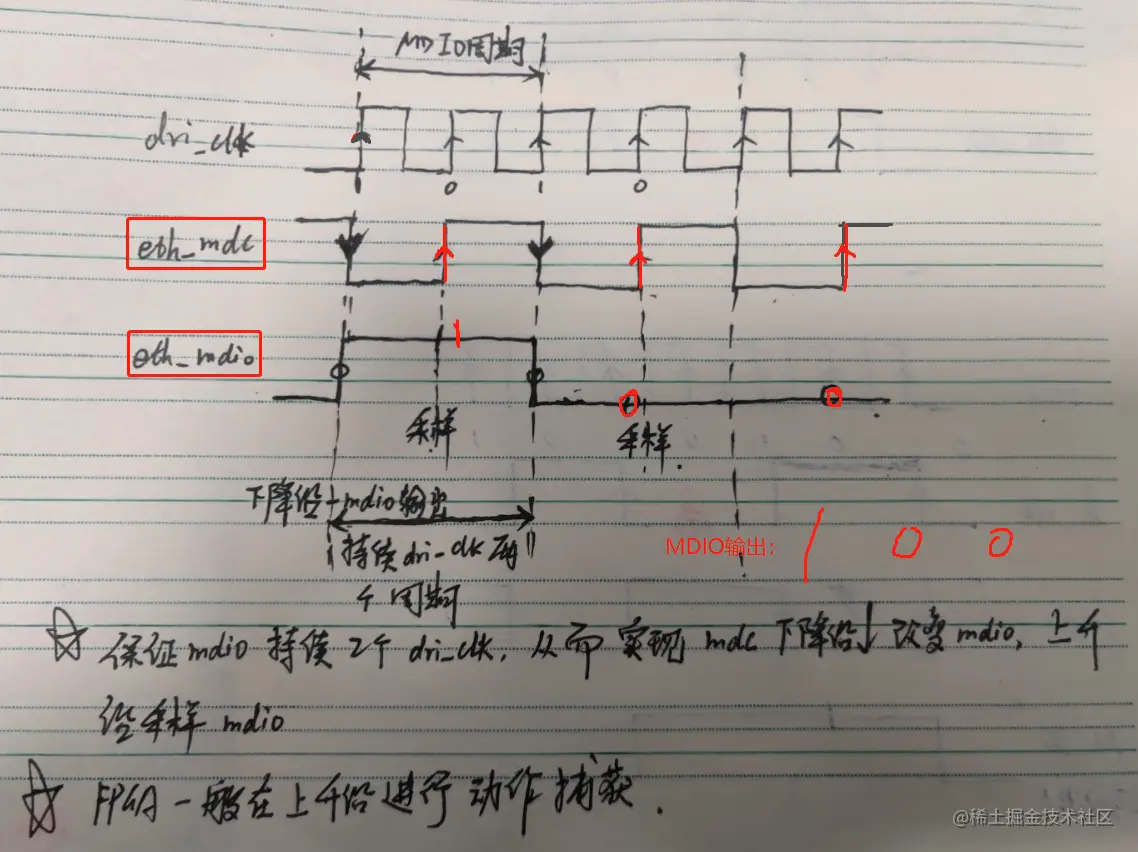 MDIO周期
dri_clk
0 1 0
eth_mdc
eth_mdio
1
采样
采样.
0 0
下降沿→mdio输出
持续dri_clk 两
个周期
MDIO输出: 1 0 0
☆ 保证mdio 持续 2个 dri_clk, 从而 实现 mdc 下降沿↓ 改变 mdio, 上升
沿采样 mdio
☆ FPGA 一般在上升沿进行 动作 捕获.
@稀土掘金技术社区